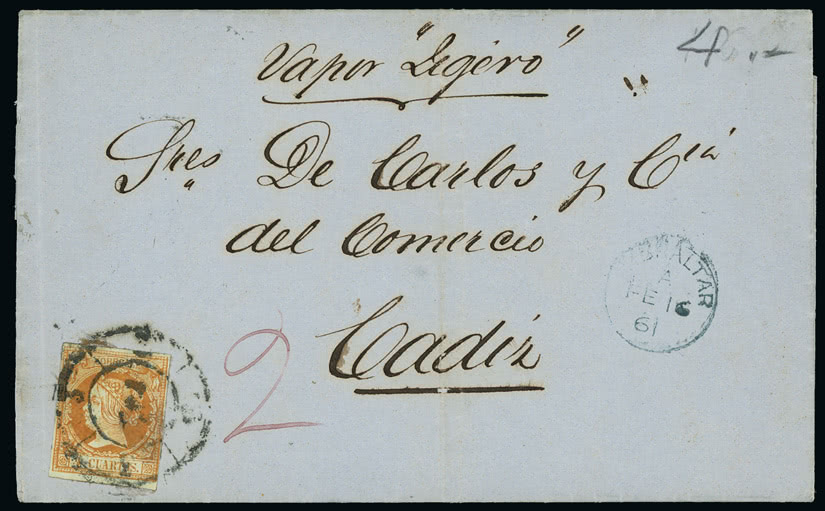 Vapor "Ligero"
Sres De Carlos y Cia
del Comercio
Cadiz
2
GIBRALTAR
A
FE 16
61
CUARTOS.